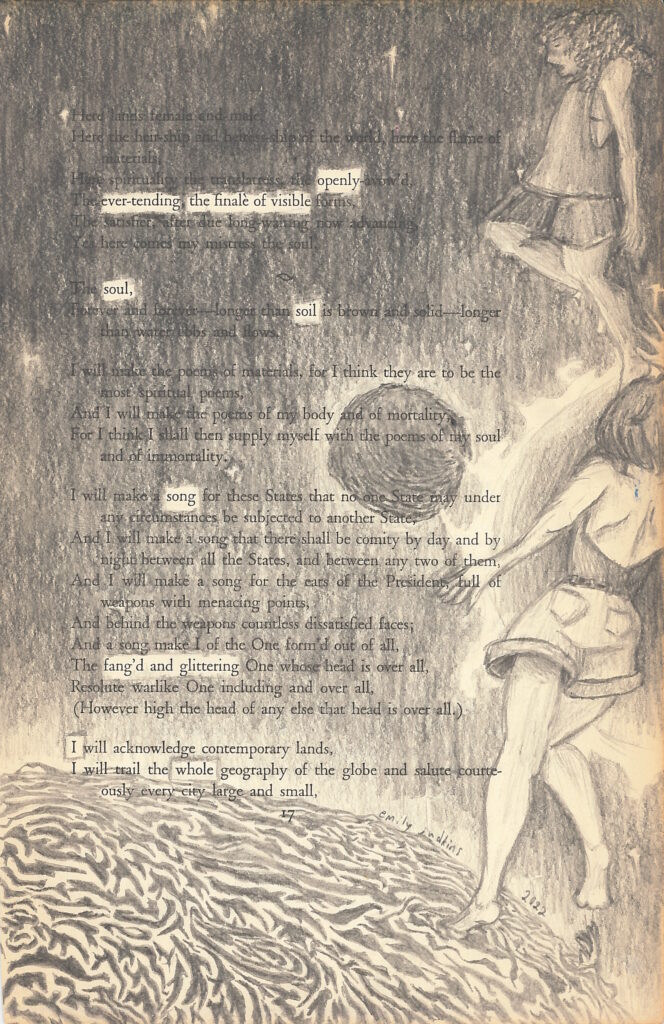 Here lands female and male,
Here the heir-ship and heiress-ship of the world, here the flame of
materials,
Here spirituality the translatress, the openly-avow'd,
The ever-tending, the finalè of visible forms,
The satisfier, after due long-waiting now advancing,
Yes here comes my mistress the soul.
The soul,
Forever and forever—longer than soil is brown and solid—longer
than water ebbs and flows.
I will make the poems of materials, for I think they are to be the
most spiritual poems,
And I will make the poems of my body and of mortality,
For I think I shall then supply myself with the poems of my soul
and of immortality.
I will make a song for these States that no one State may under
any circumstances be subjected to another State,
And I will make a song that there shall be comity by day and by
night between all the States, and between any two of them,
And I will make a song for the ears of the President, full of
weapons with menacing points,
And behind the weapons countless dissatisfied faces;
And a song make I of the One form'd out of all,
The fang'd and glittering One whose head is over all,
Resolute warlike One including and over all,
(However high the head of any else that head is over all.)
I will acknowledge contemporary lands,
I will trail the whole geography of the globe and salute courte-
ously every city large and small,
17
emily judkins
2022